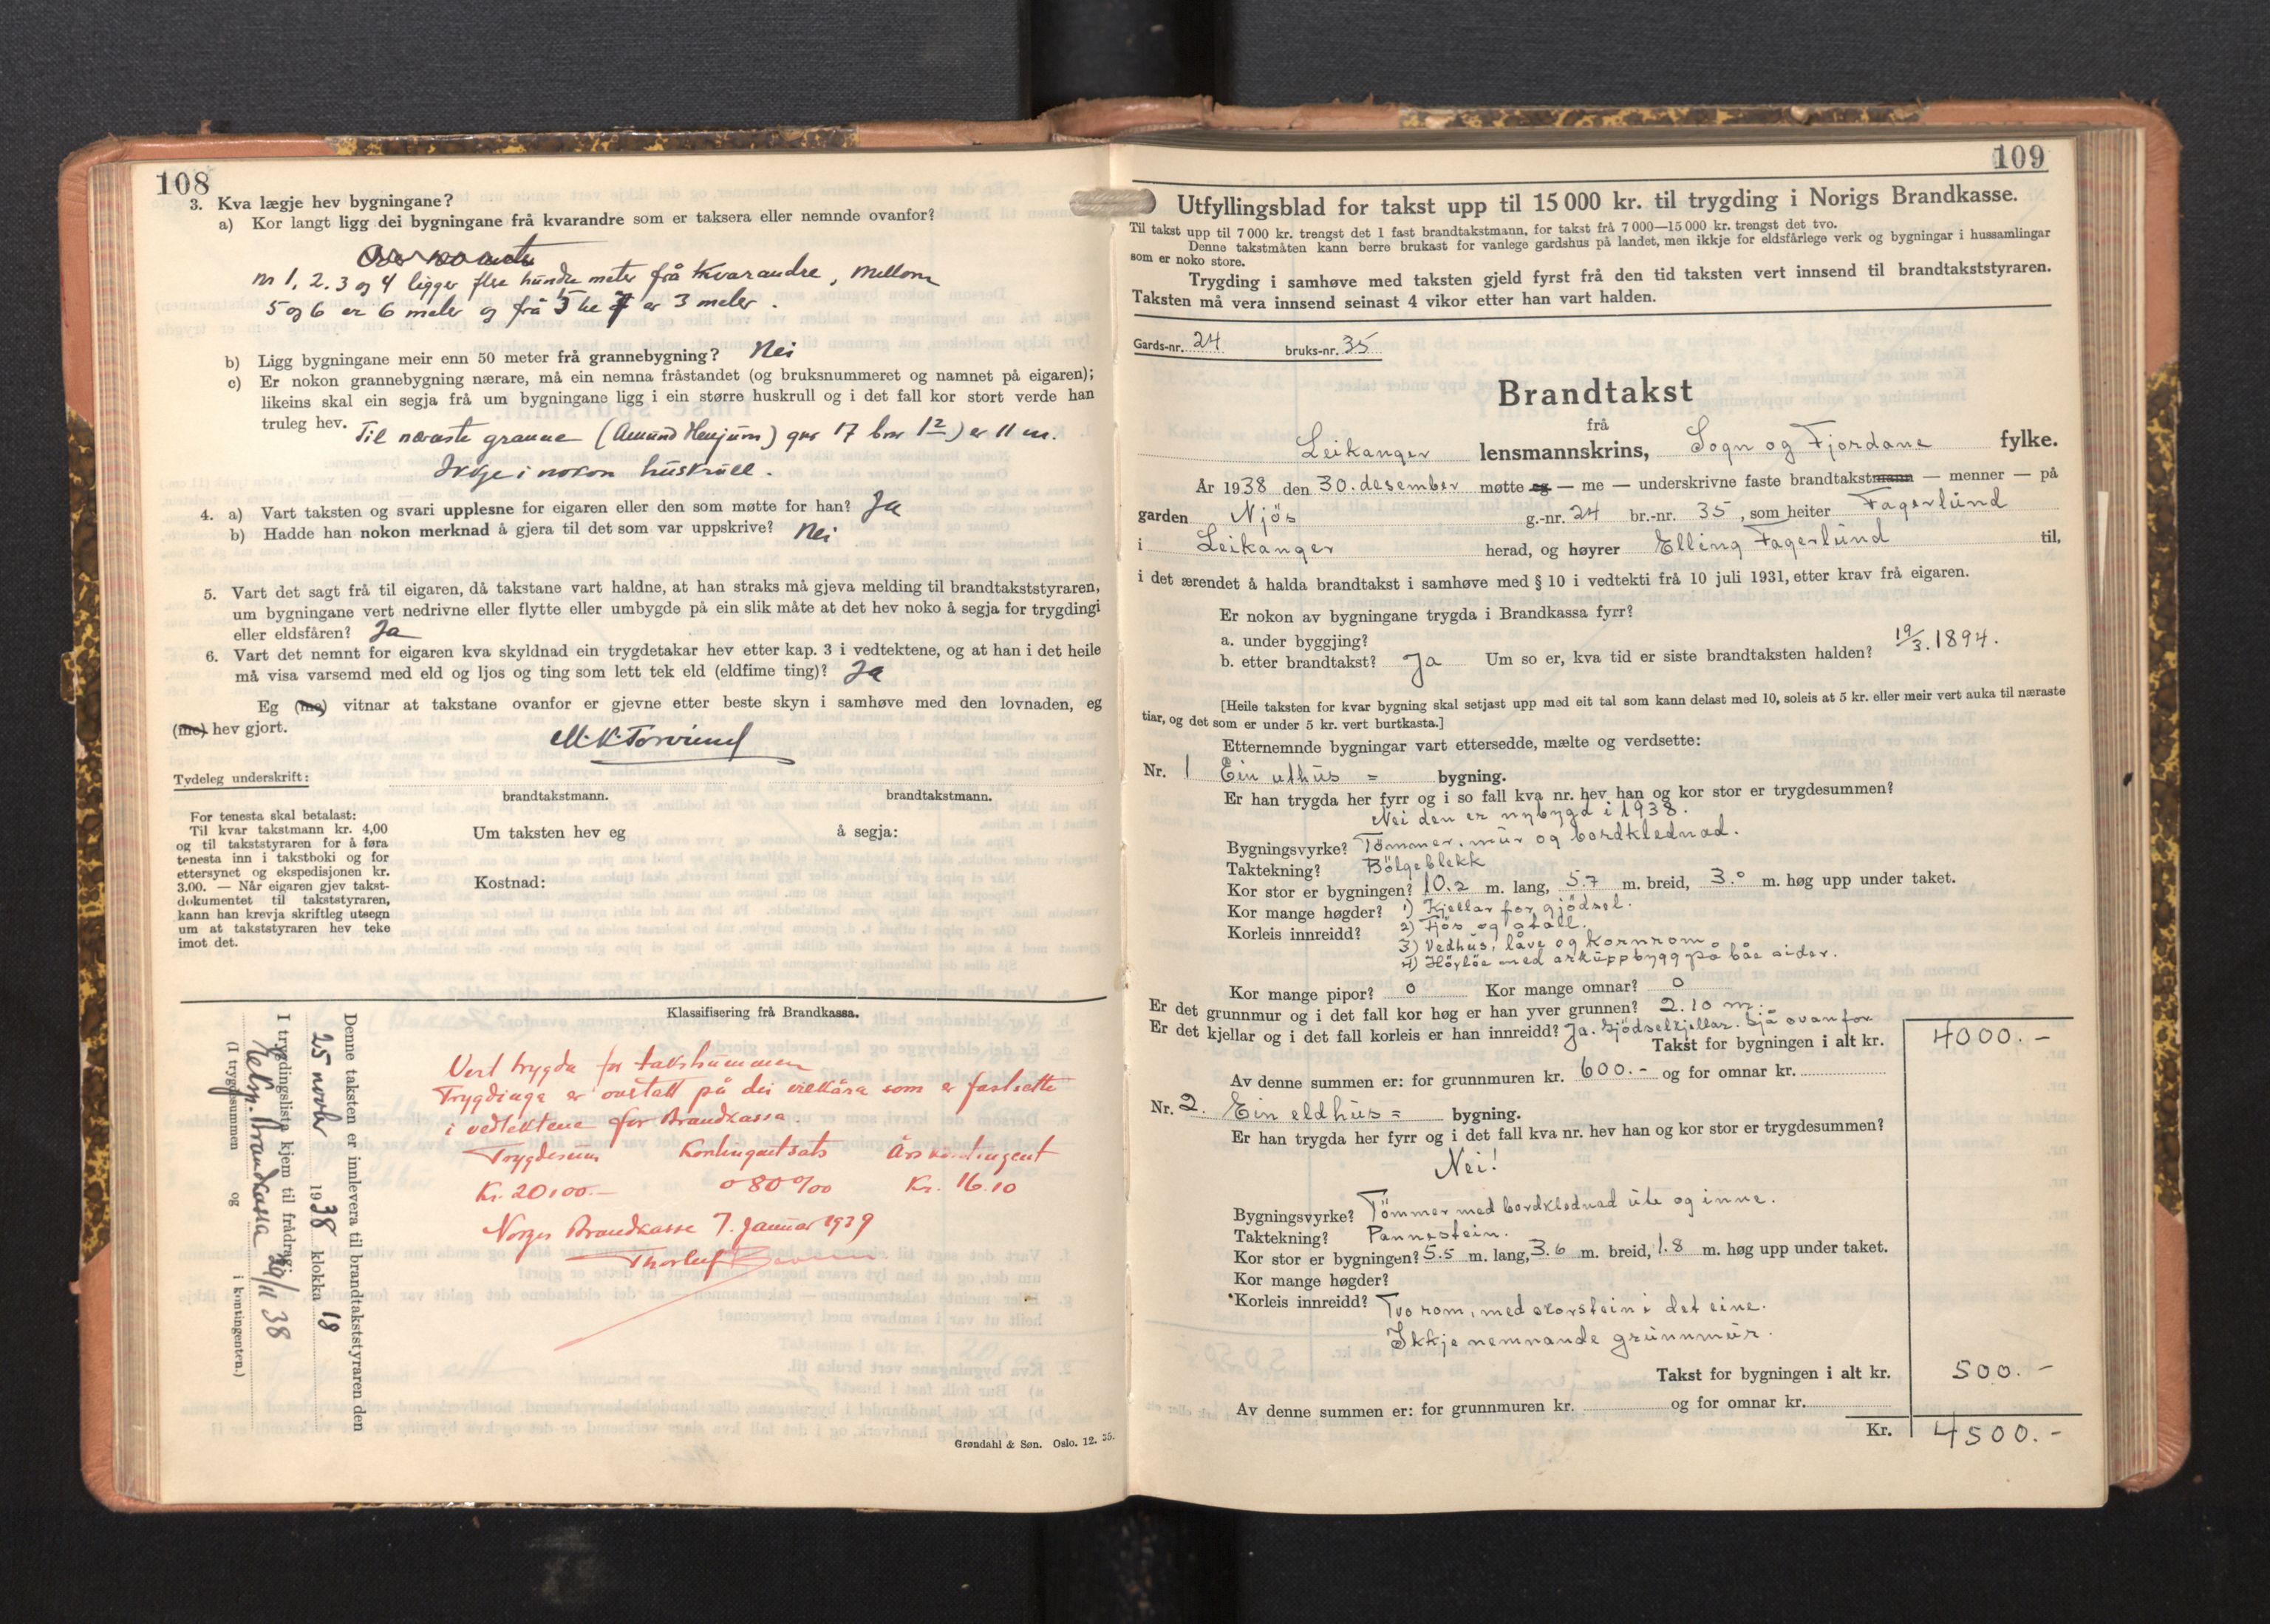 108
3. Kva lægje hev bygningane?
a) Kor langt ligg dei bygningane frå kvarandre som er taksera eller nemnde ovanfor?
nr 1, 2. 3 og 4 ligger flee hundre meter frå kvarandre, mellom
5 og 6 er 6 meter og frå 5 te 7 er 3 meter.
b) Ligg bygningane meir enn 50 meter frå grannebygning? Nei
c) Er nokon grannebygning nærare, må ein nemna fråstandet (og bruksnummeret og namnet på eigaren);
likeins skal ein segja frå um bygningane ligg i ein større huskrull og i det fall kor stort verde han
truleg hev. Til næraste granne (Amund Henjum) gnr 17 bnr 12) er 11 m.
Ikkje i nokon huskrull.
4. a) Vart taksten og svari upplesne for eigaren eller den som møtte for han? Ja
b) Hadde han nokon merknad å gjera til det som var uppskrive? Nei
5. Vart det sagt frå til eigaren, då takstane vart haldne, at han straks må gjeva melding til brandtakststyraren,
um bygningane vert nedrivne eller flytte eller umbygde på ein slik måte at det hev noko å segja for trygdingi
eller eldsfåren? Ja
6. Vart det nemnt for eigaren kva skyldnad ein trygdetakar hev etter kap. 3 i vedtektene, og at han i det heile
må visa varsemd med eld og ljos og ting som lett tek eld (eldfime ting)? Ja
Eg (me) vitnar at takstane ovanfor er gjevne etter beste skyn i samhøve med den lovnaden, eg
(me) hev gjort.
M. K. Torvund
Tydeleg underskrift:
brandtakstmann. brandtakstmann.
For tenesta skal betalast:
Til kvar takstmann kr. 4,00
og til takststyraren for å føra
tenesta inn i takstboki og for
ettersynet og ekspedisjonen kr.
3.00. — Når eigaren gjev takst-
dokumentet til takststyraren,
kann han krevja skriftleg utsegn
um at takststyraren hev teke
imot det.
Um taksten hev eg å segja:
Kostnad:
Klassifisering frå Brandkassa.
Vert trygda for takstsummen
Trygdinga er avstatt på dei vilkåra som er fastsette
i vedtektene for Brandkassa.
Trygdesum Kontingentsats Årskontingent
Kr. 20100.- 0 80 ‰ Kr. 16.10
Norges Brandkasse 7. januar 1939
Thorleif
Denne taksten er innlevera til brandtakststyraren den
25 novbr 1938 klokka 18
I trygdingslista kjem til frådrag:
Brandkassa 29/11 38
(I trygdesummen og i kontingenten.)
Grøndahl & Søn. Oslo. 12. 35.
109
Utfyllingsblad for takst upp til 15 000 kr. til trygding i Norigs Brandkasse.
Til takst upp til 7 000 kr. trengst det 1 fast brandtakstmann, for takst frå 7 000—15 000 kr. trengst det tvo.
Denne takstmåten kann berre brukast for vanlege gardshus på landet, men ikkje for eldsfårlege verk og bygningar i hussamlingar
som er noko store.
Trygding i samhøve med taksten gjeld fyrst frå den tid taksten vert innsend til brandtakststyraren.
Taksten må vera innsend seinast 4 vikor etter han vart halden.
Gards-nr. 24 bruks-nr. 35
Brandtakst
frå
Leikanger lensmannskrins, Sogn og Fjordane fylke.
År 1938 den 30. desember møtte eg — me — underskrivne faste brandtakstmann — menner — på
garden Njös g.-nr. 24 br.-nr. 35, som heiter Fagerlund
i Leikanger herad, og høyrer Elling Fagerlund til,
i det ærendet å halda brandtakst i samhøve med § 10 i vedtekti frå 10 juli 1931, etter krav frå eigaren.
Er nokon av bygningane trygda i Brandkassa fyrr?
a. under byggjing?
b. etter brandtakst? Ja Um so er, kva tid er siste brandtaksten halden? 19/3. 1894.
[Heile taksten for kvar bygning skal setjast upp med eit tal som kann delast med 10, soleis at 5 kr. eller meir vert auka til næraste
tiar, og det som er under 5 kr. vert burtkasta.]
Etternemnde bygningar vart ettersedde, mælte og verdsette:
Nr. 1 Ein uthus = bygning.
Er han trygda her fyrr og i so fall kva nr. hev han og kor stor er trygdesummen?
Nei den er nybygd i 1938.
Bygningsvyrke? Tömmer, mur og bordklednad.
Taktekning? Bölgeblekk
Kor stor er bygningen? 10.2 m. lang, 5.7 m. breid, 3.0 m. høg upp under taket.
Kor mange høgder? 1) Kjellar for gjödsel.
Korleis innreidd? 2) Fjös og stall.
3) Vedhus, låve og kornrom
4) Höyløe med arkuppbygg på båe sider.
Kor mange pipor? 0 Kor mange omnar? 0
Er det grunnmur og i det fall kor høg er han yver grunnen? 2.10 m.
Er det kjellar og i det fall korleis er han innreidd? Ja. Gjödselkjellar. Sjå ovanfor
Takst for bygningen i alt kr. 4000.-
Av denne summen er: for grunnmuren kr. 600.- og for omnar kr.
Nr. 2. Ein eldhus = bygning.
Er han trygda her fyrr og i det fall kva nr. hev han og kor stor er trygdesummen?
Nei!
Bygningsvyrke? Tömmer med bordklednad ute og inne.
Taktekning? Pannestein.
Kor stor er bygningen? 5.5 m. lang, 3.6 m. breid, 1.8 m. høg upp under taket.
Kor mange høgder?
Korleis innreidd? Tvo rom, med skorstein i det eine.
Ikkje nemnande grunnmur.
Takst for bygningen i alt kr. 500.-
Av denne summen er: for grunnmuren kr. og for omnar kr.
Kr. 4500.-